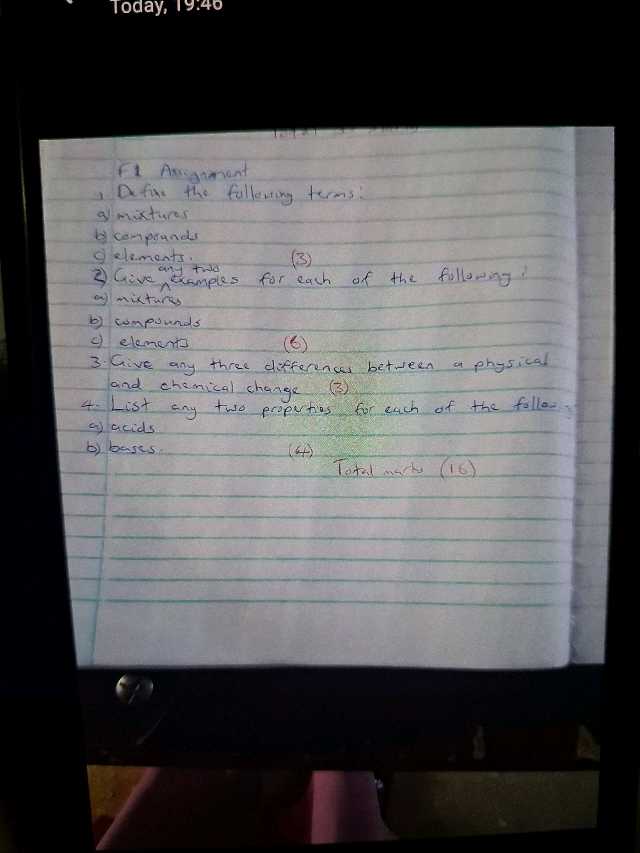 Today, 19:46
F1 Assignment
1 Define the following terms:
a) mixtures
b) compounds
c) elements. (3)
any two
2) Give examples for each of the following:
a) mixtures
b) compounds
c) elements (6)
3. Give any three differences between a physical
and chemical change (3)
4. List any two properties for each of the follow
a) acids
b) bases. (4)
Total marks (16)